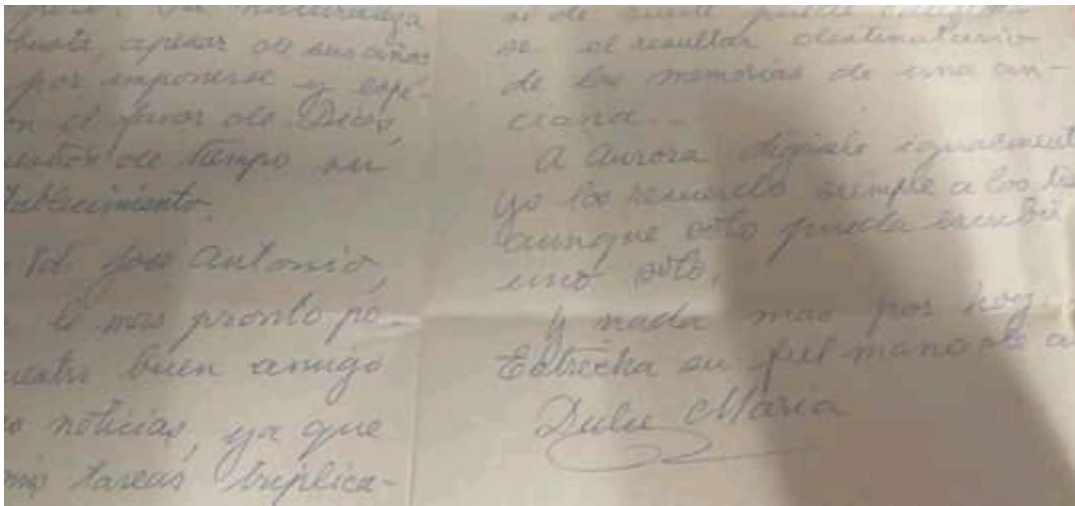 apesar de sus años
por imponerse y espe-
el favor de Dios,
de tiempo su
tablecimiento.
Vd. José Antonio,
lo mas pronto po-
buen amigo
noticias, ya que
mis tareas triplica-
se al resultar destinatario
de las memorias de una an-
ciana..
A Aurora dígale igualment
yo los recuerdo siempre a los
aunque solo pueda escribi
uno solo.
Y nada mas por hoy.
Estrecha su fiel mano de a
Dulce María